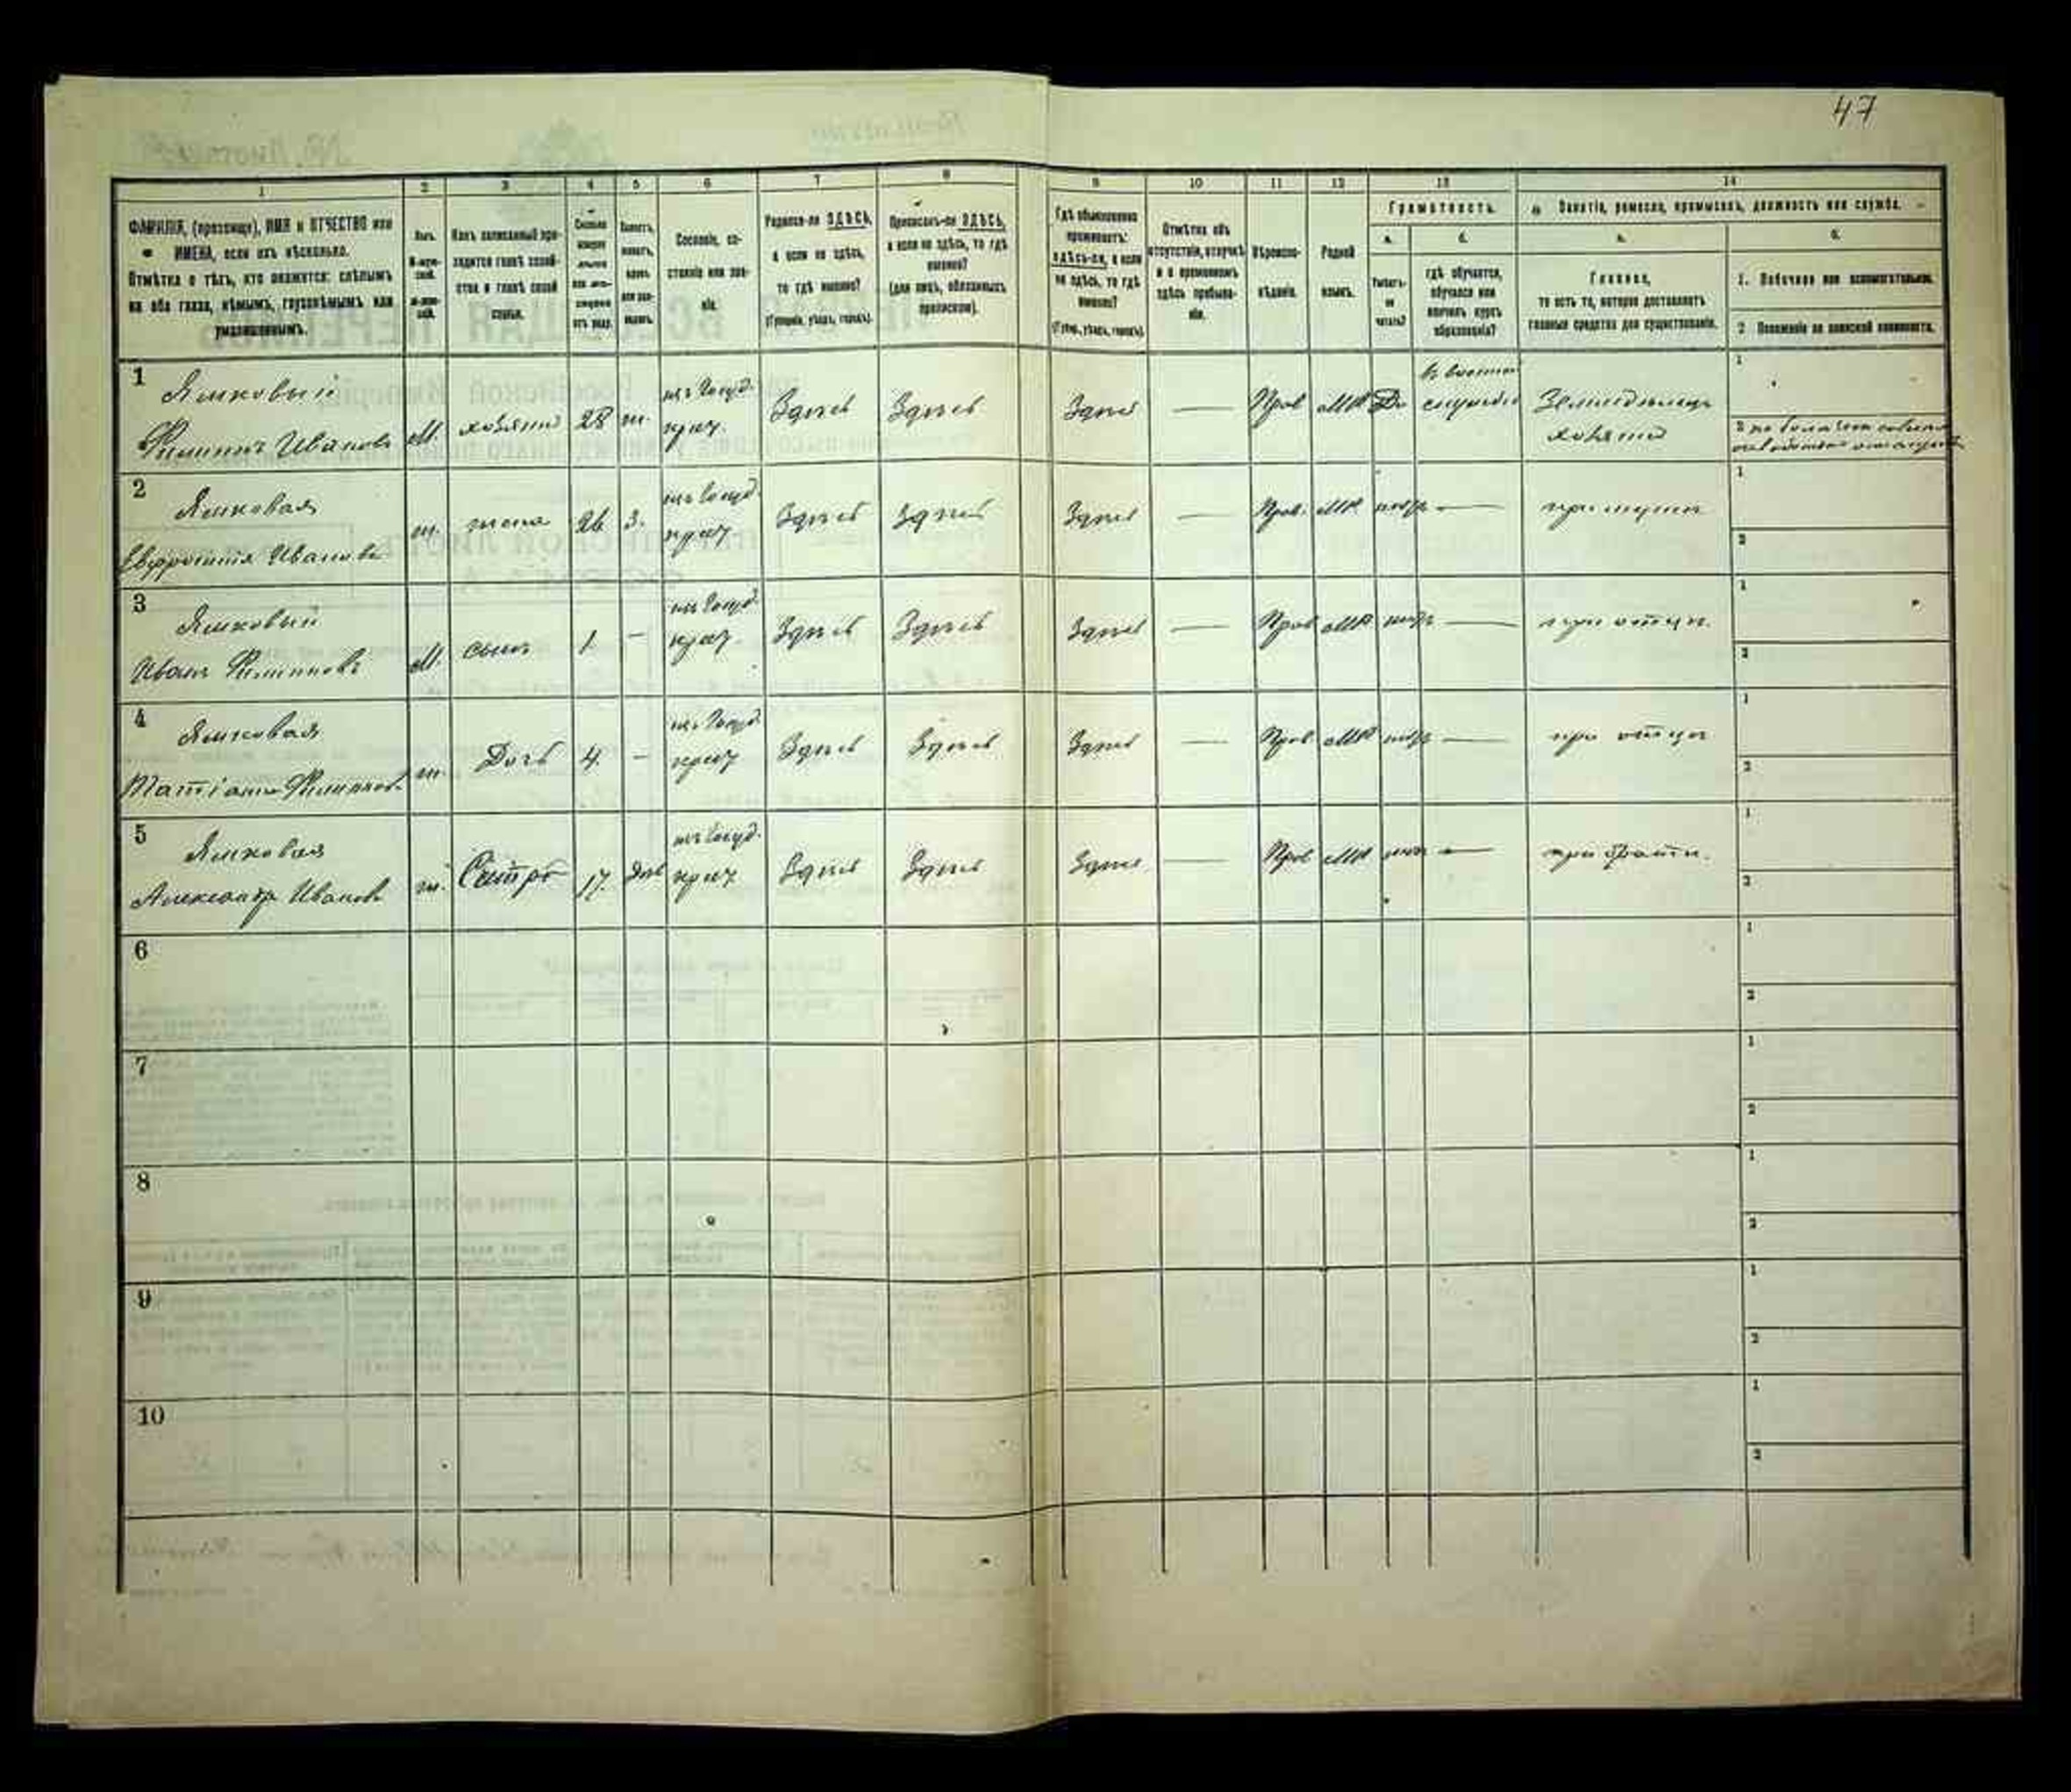 47
1 2 3 4 5 6 7 8 9 10 11 12 13 14
ФАМИЛІЯ, (прозвище), ИМЯ и ОТЧЕСТВО или
ИМЕНА, если ихъ нѣсколько.
Отмѣтка о тѣхъ, кто окажется: слѣпымъ
на оба глаза, нѣмымъ, глухонѣмымъ или
умалишеннымъ.
Полъ.
Какъ записанный при-
ходится главѣ хозяй-
ства и главѣ своей
семьи.
Сословіе, со-
стояніе или зва-
ніе.
Родился-ли ЗДѢСЬ,
а если не здѣсь,
то гдѣ именно?
(Губернія, уѣздъ, городъ).
Приписанъ-ли ЗДѢСЬ,
а если не здѣсь, то гдѣ
именно?
(для лицъ, обязанныхъ
припискою).
Гдѣ обыкновенно
проживаетъ:
здѣсь-ли, а если
не здѣсь, то гдѣ
именно?
(Губер., уѣздъ, городъ).
Отмѣтка объ
отсутствіи, отлучкѣ
и о временномъ
здѣсь пребыва-
ніи.
Вѣроиспо-
вѣданіе.
Родной
языкъ.
Грамотность.
а.
Умѣетъ-
ли
читать?
б.
гдѣ обучается,
обучался или
кончилъ курсъ
образованія?
Занятіе, ремесло, промыселъ, должность или служба.
а.
Главное,
то есть то, которое доставляетъ
главныя средства для существованія.
б.
1. Побочное или вспомогательное.
2 Положеніе по воинской повинности.
1 Ямковый
Филиппъ Ивановъ М. хозяинъ 28 ж. изъ Госуд. крест. Здѣсь Здѣсь Здѣсь — Прав МР Да службѣ Земледѣлецъ хозяинъ 1 2
2 Ямковая
Евфросинія Иванов ж. жена 26 З. изъ Госуд. крест Здѣсь Здѣсь Здѣсь — Прав. МР — при мужѣ 1 2
3 Ямковый
Иванъ Филипповъ М. сынъ 1 — изъ Госуд. крест. Здѣсь Здѣсь Здѣсь — Прав МР — при отцѣ. 1 2
4 Ямковая
Татіана Филиппов. ж. Дочь 4. — изъ Госуд. крест Здѣсь Здѣсь Здѣсь — Прав МР — при отцѣ 1 2
5 Ямковая
Александр Иванов ж. Сестра 17. изъ Госуд. крест Здѣсь Здѣсь Здѣсь — Прав МР — при братѣ. 1 2
6 1 2
7 1 2
8 1 2
9 1 2
10 1 2